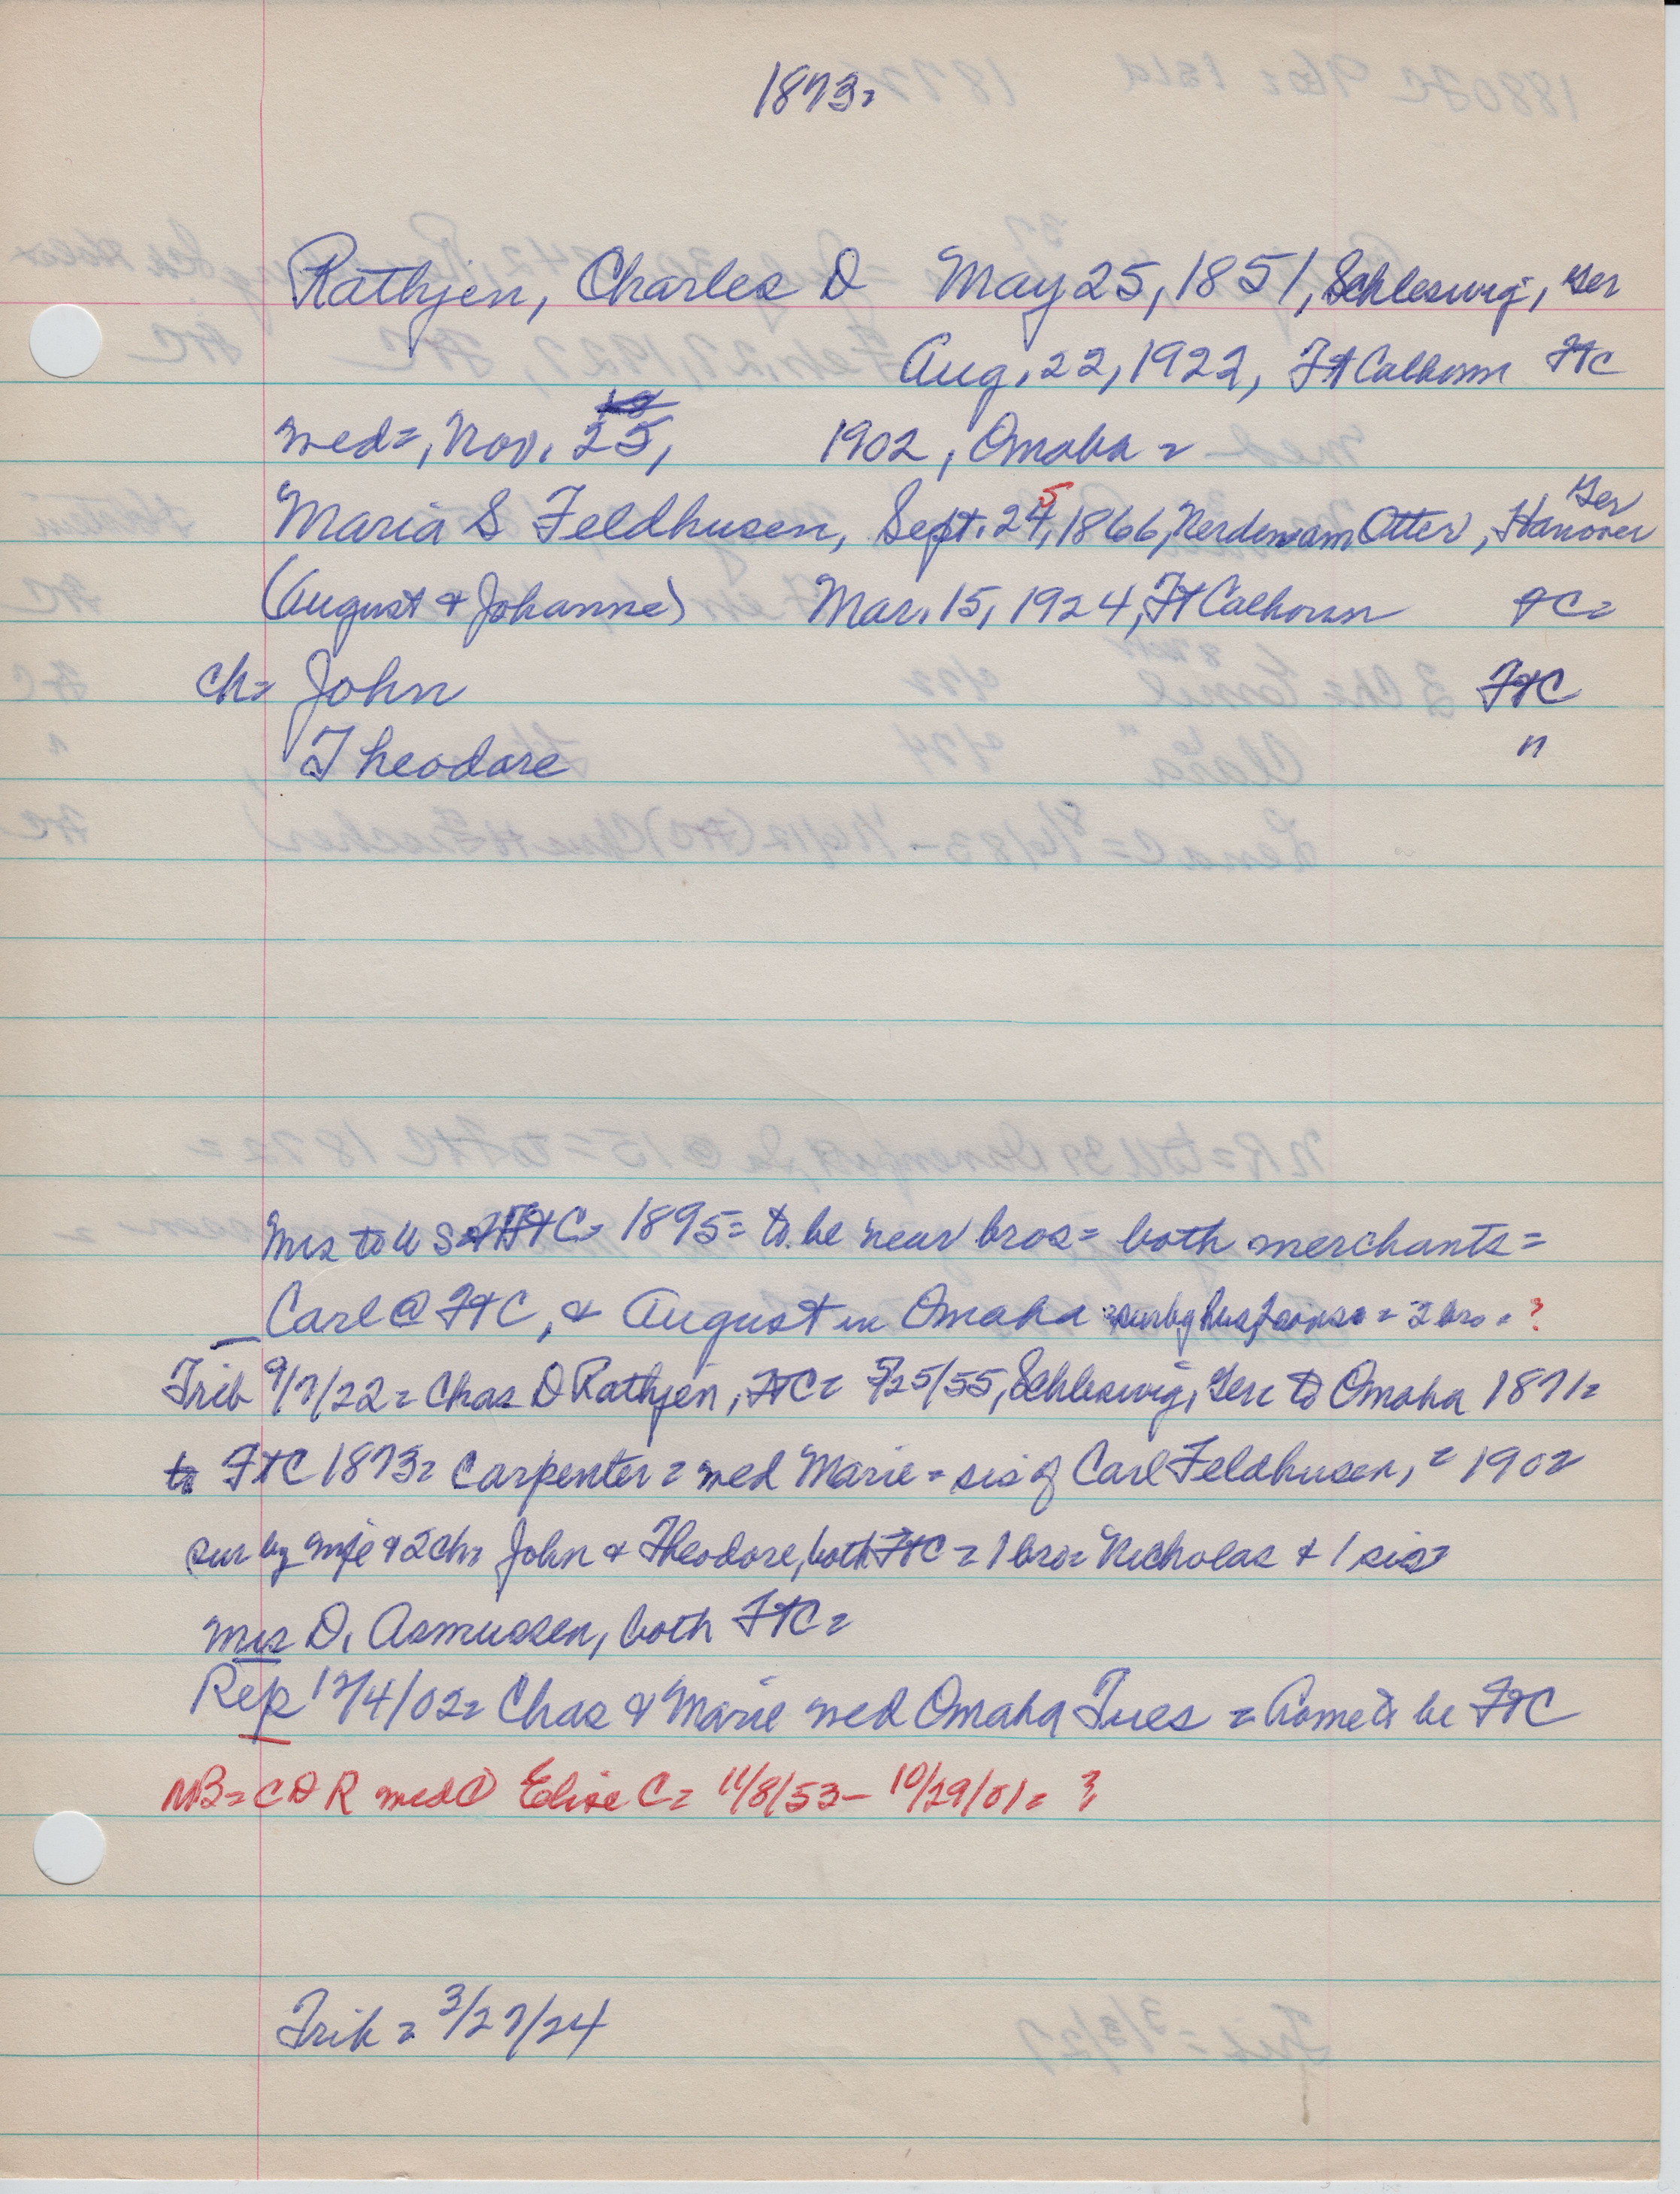 1873=
Rathjen, Charles D May 25, 1851, Schleswig, Ger
Aug. 22, 1922, Ft Calhoun FtC
med=, Nov. 25, 1902, Omaha =
Ger
Maria S Feldhusen, Sept. 24, 5 1866, Otter, Hanover
(August & Johanne) Mar. 15, 1924, Ft Calhoun FC=
ch= John FtC
Theodore "
Mrs to US & FtC= 1895= to be near bros= both merchants=
Carl @ FtC, & August in Omaha = sur by hus, 2 sons = 2 bro = ?
Trib 9/7/22= Chas D Rathjen, FtC= 5/25/55, Schleswig, Ger= to Omaha 1871=
to FtC 1873= Carpenter= med Marie = sis of Carl Feldhusen, = 1902
sur by wife & 2 ch= John & Theodore, both FtC = 1 bro= Nicholas & 1 sis=
Mrs D. Asmussen, both FtC=
Rep 12/4/02= Chas & Marie med Omaha Tues = home to be FtC
NB= C D R med ① Elise C= 11/8/53- 10/29/01= ?
Trib = 3/27/24